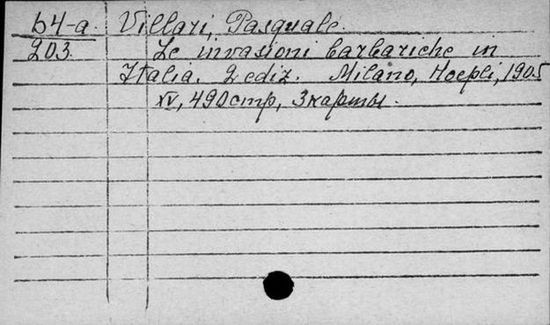 64-a. Villari, Pasquale
203. Le invasioni barbariche in
Italia. 2 ediz. Milano, Hoepli, 1905
XV, 490 стр, 3 карты.